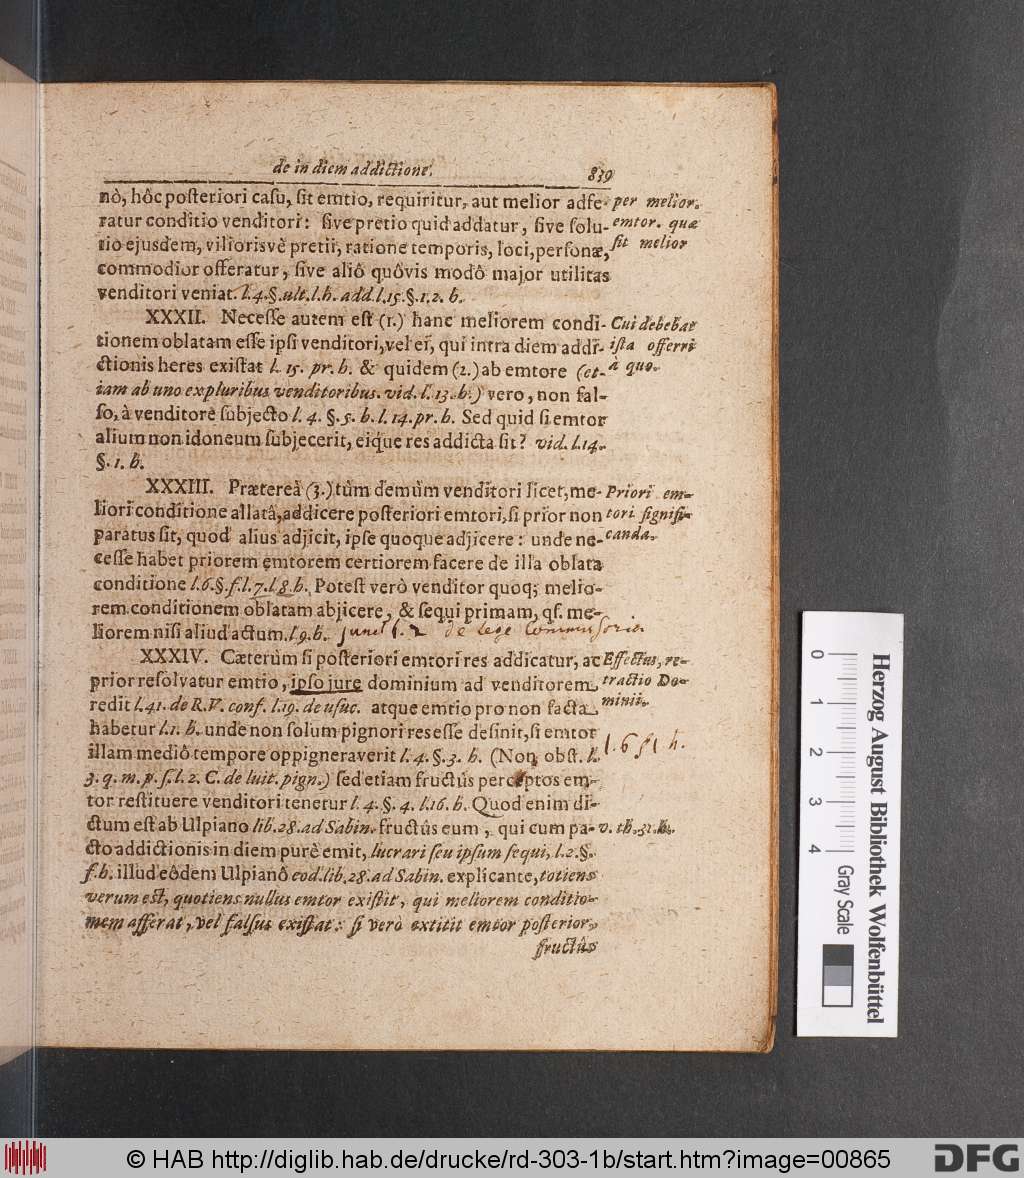 de in diem addictione. 839
nò, hôc posteriori casu, sit emtio, requiritur, aut melior adfe-
ratur conditio venditori: sive pretio quid addatur, sive solu-
tio ejusdem, viliorisvè pretii, ratione temporis, loci, personæ,
commodior offeratur, sive aliô quôvis modô major utilitas
venditori veniat. l.4.§.ult.l.h. add.l.15.§.1.2. h.
per melior.
emtor. quæ
sit melior
XXXII. Necesse autem est (1.) hanc meliorem condi-
tionem oblatam esse ipsi venditori, vel ei, qui intra diem addi-
ctionis heres existat l. 15. pr. h. & quidem (2.) ab emtore (et-
iam ab uno expluribus venditoribus. vid. l. 13. h.) vero, non fal-
so, à venditore subjecto l. 4. §. 5. h. l. 14. pr. h. Sed quid si emtor
alium non idoneum subjecerit, eiq́ue res addicta sit? vid. l. 14.
§. 1. h.
Cui debebat
ista offerri
à quo.
XXXIII. Prætereà (3.) tùm demùm venditori licet, me-
liori conditione allatâ, addicere posteriori emtori, si prior non
paratus sit, quod alius adjicit, ipse quoque adjicere: unde ne-
cesse habet priorem emtorem certiorem facere de illa oblata
conditione l.6.§.f.l.7.l.8.h. Potest verò venditor quoq; melio-
rem conditionem oblatam abjicere, & sequi primam, qs. me-
liorem nisi aliud actum. l.9.h. junct l. 2 de lege Commissoria.
Priori em-
tori signifi-
canda.
XXXIV. Cæterùm si posteriori emtori res addicatur, ac
prior resolvatur emtio, ipso jure dominium ad venditorem
redit l.41. de R.V. conf. l.19. de usuc. atque emtio pro non facta
habetur l.1. h. unde non solum pignori res esse desinit, si emtor
illam mediô tempore oppigneraverit l. 4. §. 3. h. (Non obst. l.
3. q. m. p. s. l. 2. C. de luit. pign.) sed etiam fructûs perceptos em-
tor restituere venditori tenetur l. 4. §. 4. l.16. h. Quod enim di-
ctum est ab Ulpiano lib. 28. ad Sabin. fructûs eum, qui cum pa-
cto addictionis in diem purè emit, lucrari seu ipsum sequi, l.2.§.
f. h. illud eôdem Ulpianô eod. lib. 28. ad Sabin. explicante, totiens
verum est, quotiens nullus emtor existit, qui meliorem conditio-
mem afferat, vel falsus existat: si verò extitit emtor posterior,
fructûs
Effectus, re-
tractio Do-
minii.
l. 6 §1 h.
v. th. 31. h.
0 1 2 3 4
Herzog August Bibliothek Wolfenbüttel
Gray Scale
© HAB http://diglib.hab.de/drucke/rd-303-1b/start.htm?image=00865
DFG